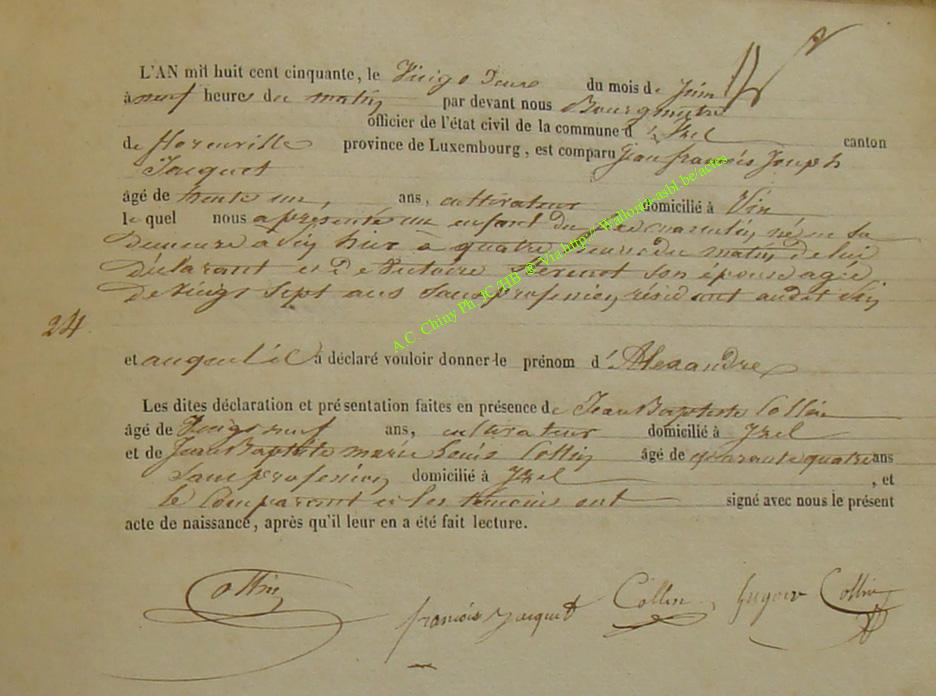 L'AN mil huit cent cinquante, le Vingt Deux du mois de Juin
à neuf heures du matin par devant nous Bourgmestre
officier de l'état civil de la commune d'Izel canton
de florenville province de Luxembourg, est comparu Jean françois Joseph
Jacquet
âgé de trente un, ans, cultivateur domicilié à Vin
le quel nous a présenté un enfant du sexe masculin né en sa
Demeure à Vin hier à quatre heures du matin de lui
Déclarant et De Victoire son épouse agée
De Vingt Sept ans Sans profession résidant audit Vin
24
et auquel il a déclaré vouloir donner le prénom d'Alexandre
Les dites déclaration et présentation faites en présence de Jean Baptiste Collin
âgé de Vingt neuf ans, cultivateur domicilié à Izel
et de Jean Baptiste marie Louis Collin âgé de quarante quatre ans
Sans profession domicilié à Izel , et
le Comparant et les témoins ont signé avec nous le présent
acte de naissance, après qu'il leur en a été fait lecture.
Collin françois Jacquet Collin Collin
A.C. Chiny Ph JC/HB @ Via http:// Wallonia-asbl.be/actes